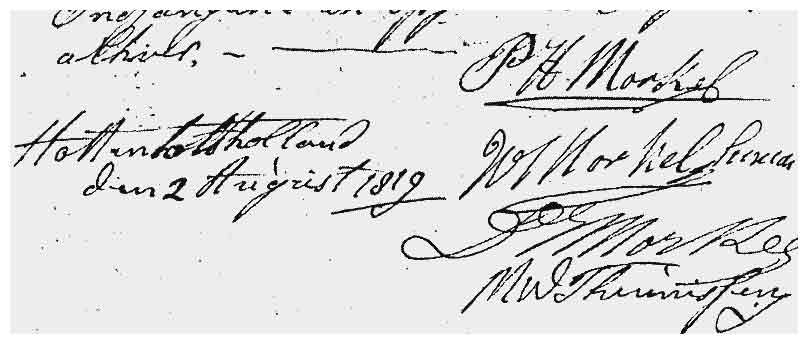 alhier. —
P H Morkel
Hottentotsholland
den 2 August 1819
W Morkel Senior
Morkel
M W Theunissen